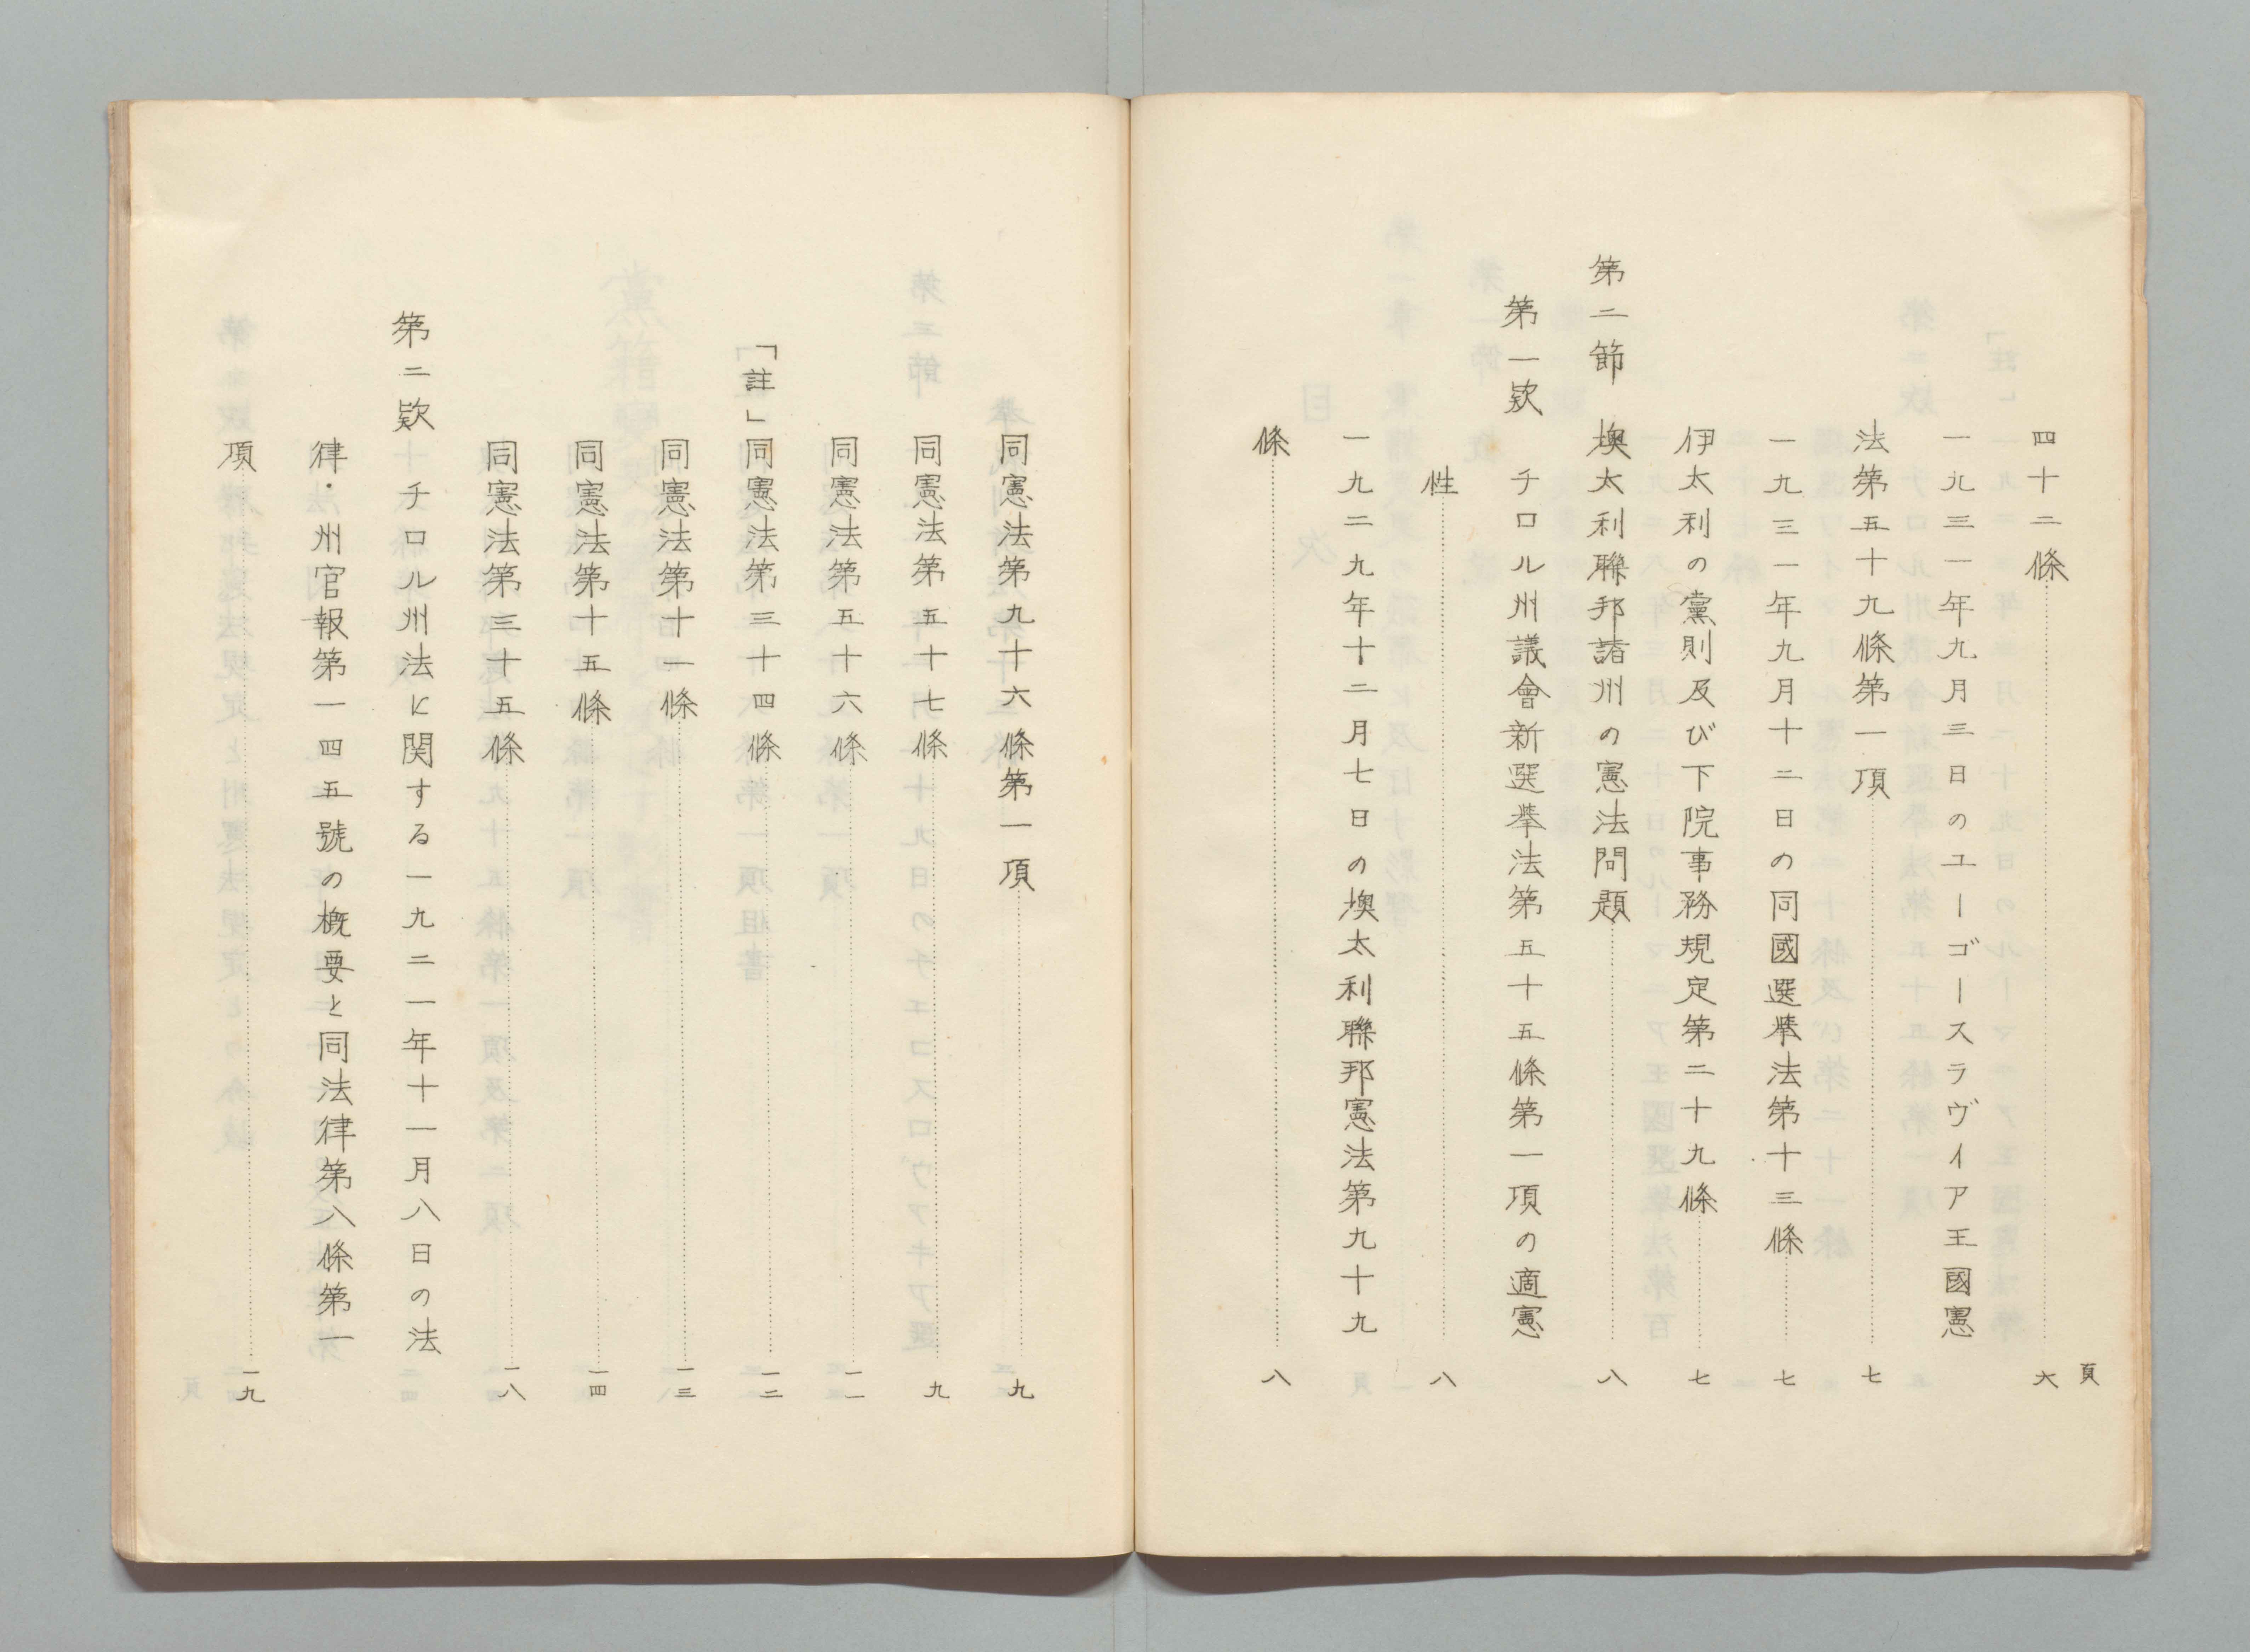 頁
四十二條……六
一九三一年九月三日のユーゴースラヴィア王國憲
法第五十九條第一項……七
一九三一年九月十二日の同國選擧法第十三條……七
伊太利の黨則及び下院事務規定第二十九條……七
第二節 墺太利聯邦諸州の憲法問題……八
第一欵 チロル州議會新選擧法第五十五條第一項の適憲
性……八
一九二九年十二月七日の墺太利聯邦憲法第九十九
條……八
同憲法第九十六條第一項……九
同憲法第五十七條……九
同憲法第五十六條……一一
「註」同憲法第三十四條……一二
同憲法第十一條……一三
同憲法第十五條……一四
同憲法第三十五條……一八
第二欵 チロル州法に関する一九二一年十一月八日の法
律・州官報第一四五號の槪要と同法律第八條第一
項……一九